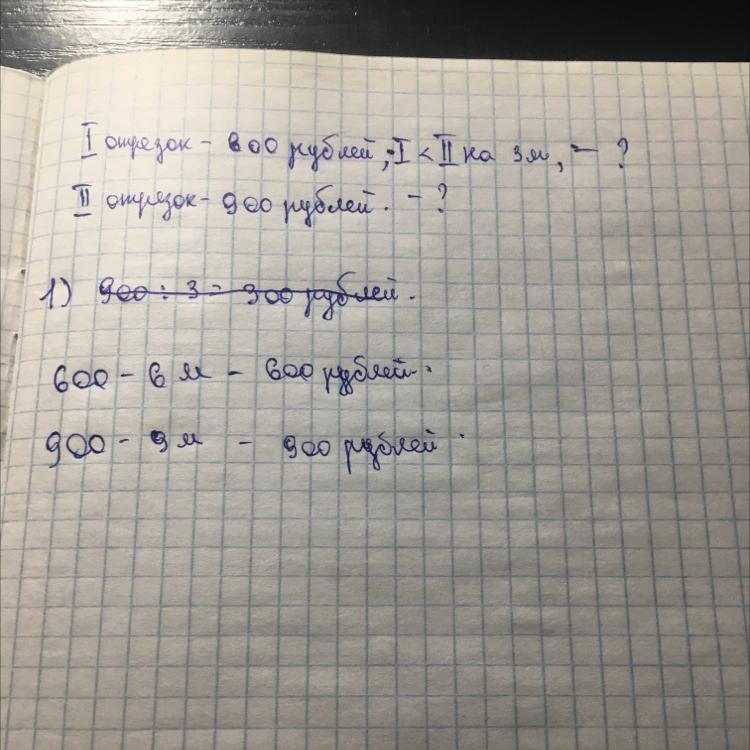 I отрезок - 600 рублей, I < II на 3м, - ?
II отрезок - 900 рублей. - ?
1) 900 : 3 = 300 рублей.
600 - 6 м - 600 рублей.
900 - 9 м - 900 рублей.